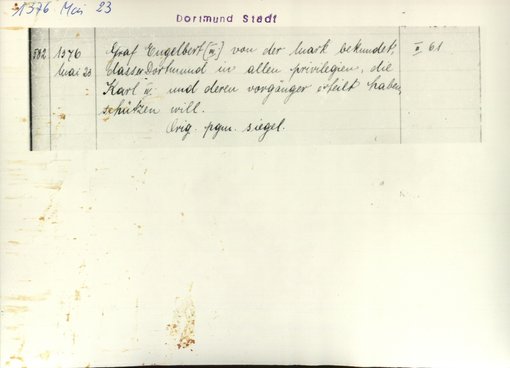 1376 Mai 23
Dortmund Stadt
582 1376 Graf Engelbert [III.] von der Mark bekundet, II 61
Mai 23 dass er Dortmund in allen privilegien, die
Karl IV. und deren vorgänger erteilt haben,
schützen will.
Orig. pgm. siegel.